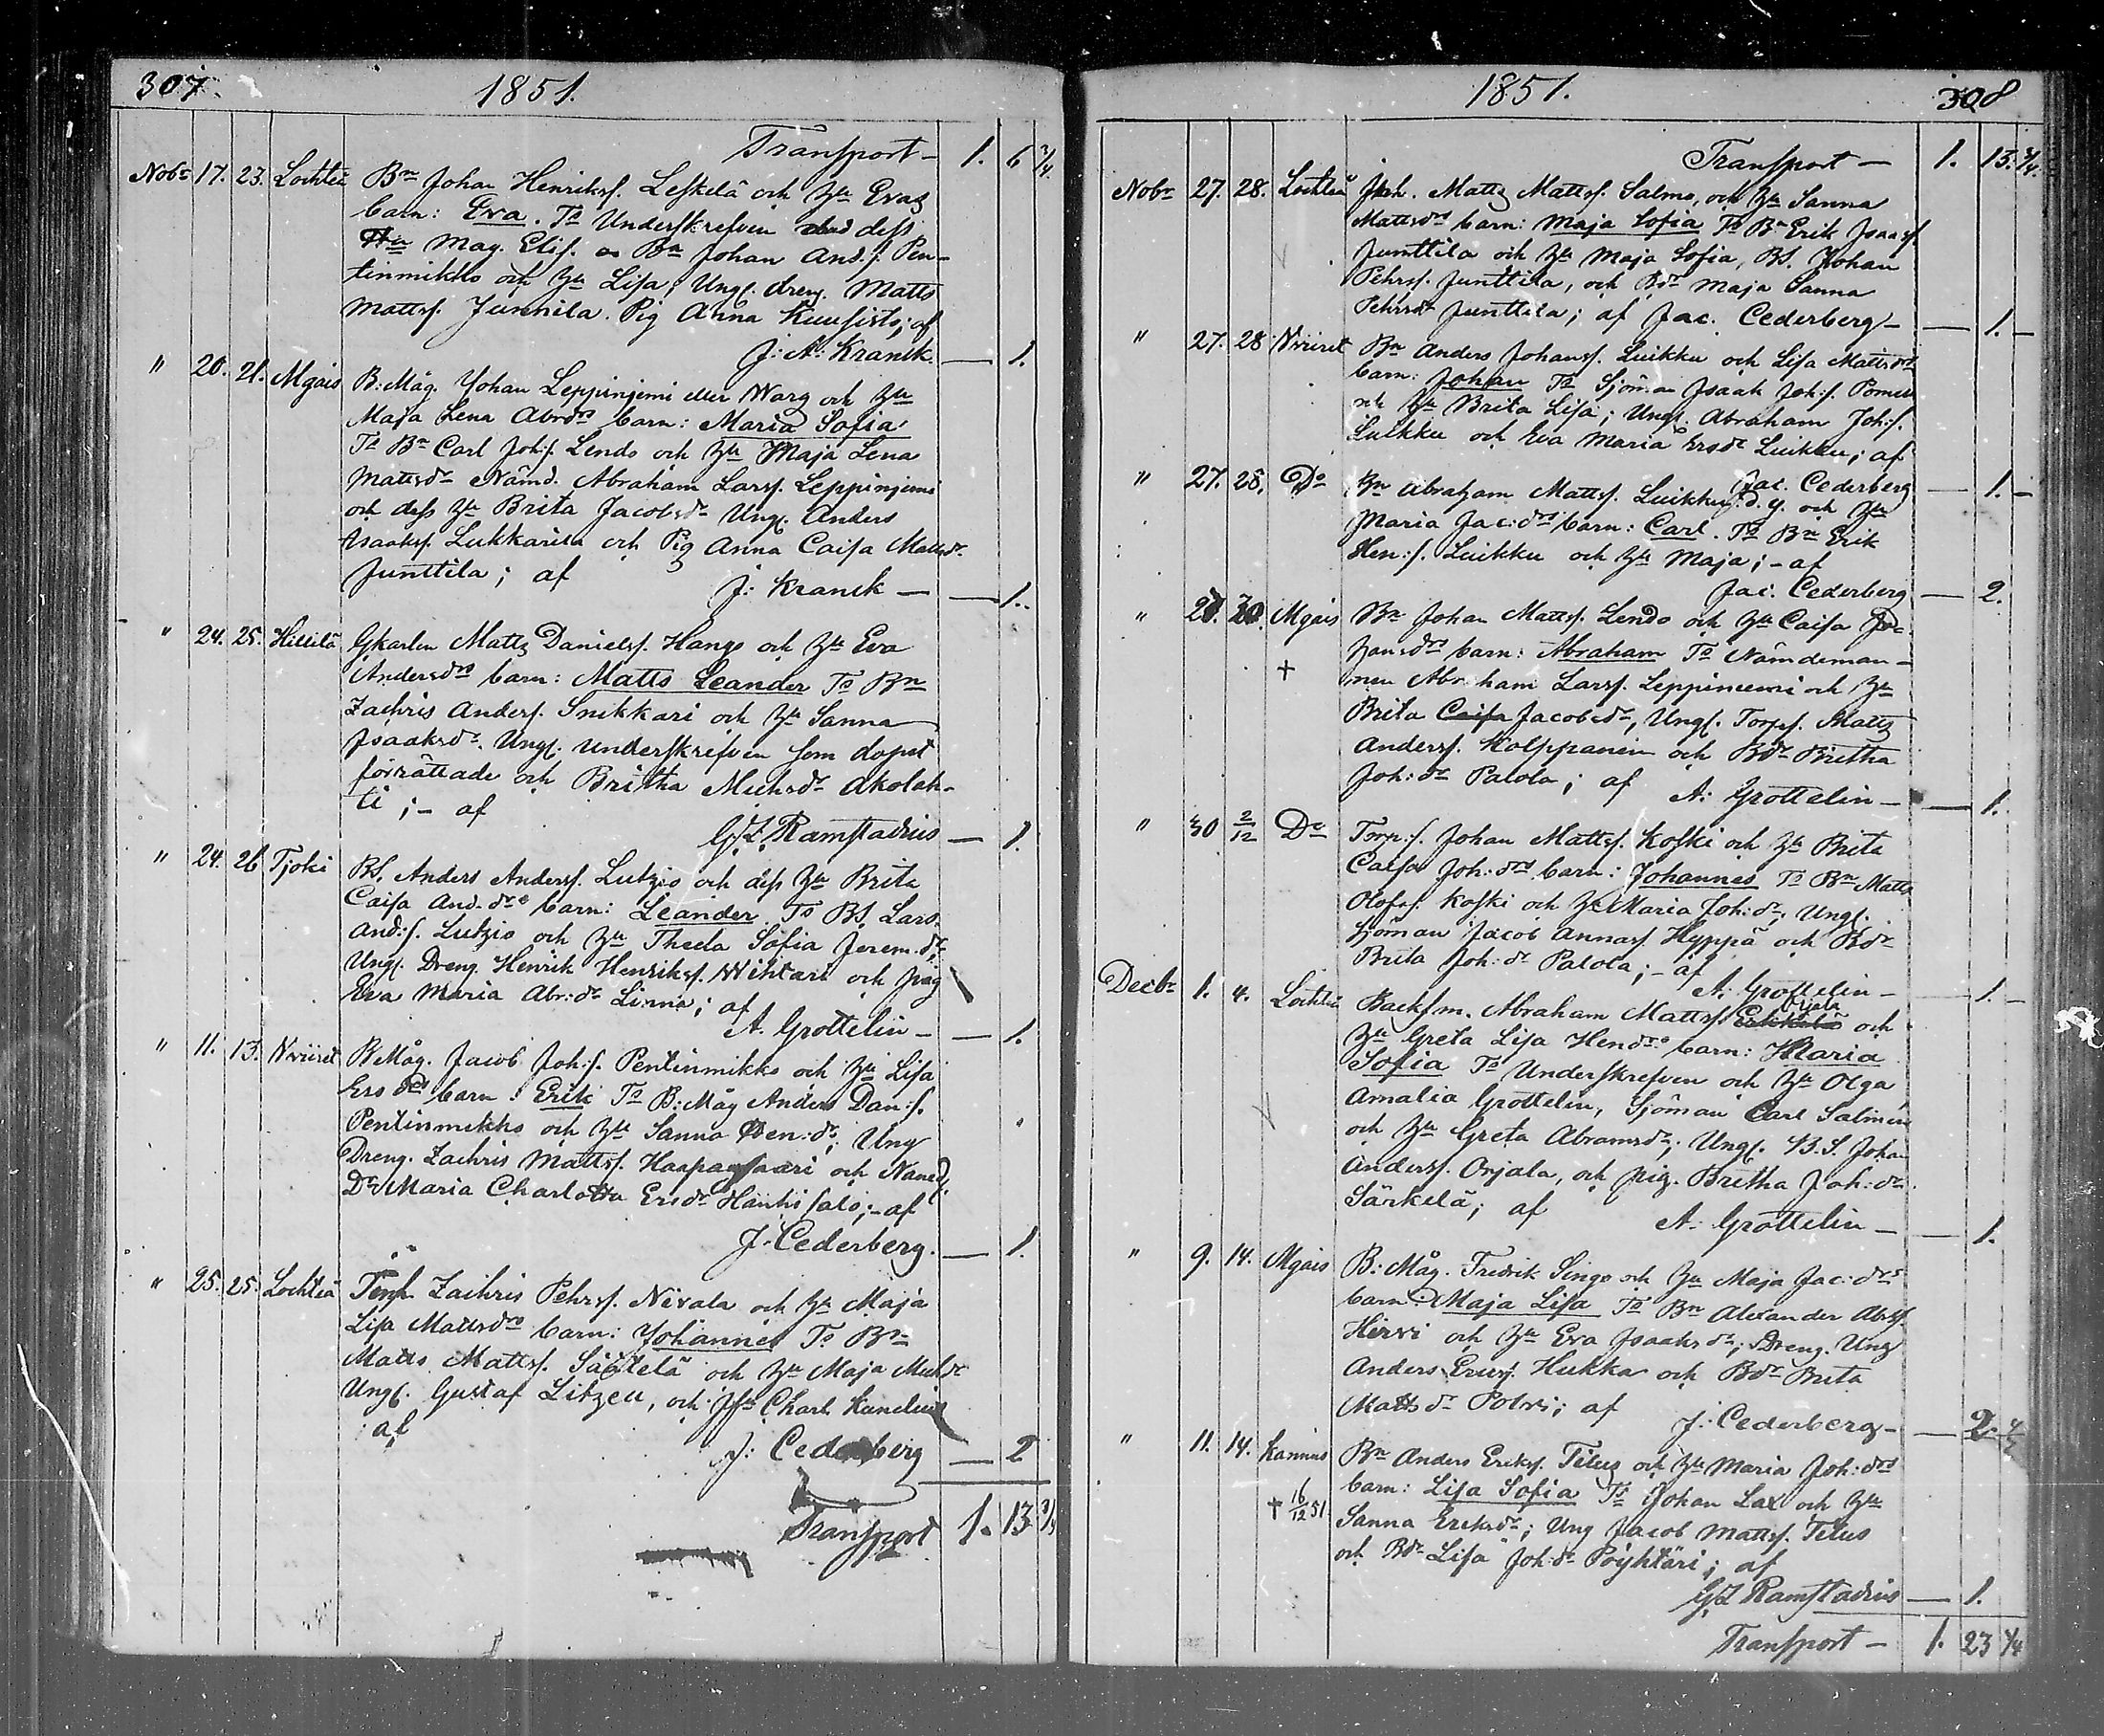 307. 1851.
Transport — 1. 6 3/4.
Nobr 17. 23. Lochteå Bn Johan Henrikss. Leskelä och Hu Evas
barn: Eva. To Underskrefven dess
Hu Mag. Elis. Bn Johan And.s. Pen-
tinmikko och Hu Lisa; Ungl. dreng. Matts
Mattss. Junnila. Pig Anna Kuusisto; af
J: A: Kranck. — 1.
" 20. 21. Mgais B: Måg. Johan Leppinjemi eller Warg och Hu
Maja Lena Abrdrs barn: Maria Sofia
To Bn Carl Joh:s. Lendo och Hu Maja Lena
Mattsdr Nämd. Abraham Larss. Leppinjemi
och dess Hu Brita Jacobsdr Ungl. Anders
Isaakss. Lukkarila och Pig Anna Caisa Mattsdr
Junttila; af J: Kranck — — 1.
" 24. 25. Hillilä Gkarlen Matts Danielss. Hango och Hu Eva
Andersdrs barn: Matts Leander To Bn
Zachris Anders. Snikkari och Hu Sanna
Isaaksdr. Ungl. underskrefven som dopet
förrättade och Britha Michsdr Akolah-
ti; – af
G.Z. Ramstadius — 1.
" 24. 26 Tjoki BS. Anders Anderss. Lutzio och dess Hu Brita
Caisa And.drs barn: Leander To BS. Lars
And:s. Lutzio och Hu Theda Sofia Jerem.dr;
Ungl. Dreng. Henrik Henrikss. Wihtari och pig
Eva Maria Abr:dr Linna; af
A. Grottelin — — 1.
" 11. 13. Nviiret B Måg. Jacob Joh:s. Pentinmikko och Hu Lisa
Ersdrs barn: Erik To B: Måg Anders Dan:s.
Pentinmikko och Hu Sanna Hen:dr; Ung
Dreng. Zachris Mattss. Haapasaari och Nämd.
Dr Maria Charlotta Ersdr Hänhisalo; – af
J. Cederberg. — 1.
" 25. 25. Lochteå Zachris Pehrss. Nivala och Hu Maja
Lisa Mattsdrs barn: Johannes To Bn
Matts Mattss. Säätelä och Hu Maja Michdr
Ungl. Gustaf Litzen, och Jfr Charl.
af
J: Cederberg — 2
Transport 1. 13 3/4
1851. 308
Transport — 1. 13. 3/4.
Nobr 27. 28. Lochteå Matts Mattss. Salmo, och Hu Sanna
Mattsdrs barn: Maja Sofia To Bn Erik Isaass.
Junttila och Hu Maja Sofia, BS. Johan
Pehrss. Junttila, och Bdr Maja Sanna
Pehrsdr Junttila; af Jac. Cederberg — — 1. —
" 27. 28 Nviiret Bn Anders Johanss. Luikku och Lisa Mattsdrs
barn: Johan To Sjöman Isaak Joh:s.
och Hu Brita Lisa; Ungl. Abraham Joh:s.
Luikku och Eva Maria Ersdr Luikku; af
Jac. Cederberg — 1. —
" 27. 28. Do Bn Abraham Mattss. Luikku d. y. och Hu
Maria Jac:drs barn: Carl. To Bn Erik
Hen:s. Luikku och Hu Maja; – af
Jac. Cederberg — 2.
" 30. Mgais Bn Johan Mattss. Lendo och Hu Caisa Jo-
hansdrs barn: Abraham To Nämdeman-
† nen Abraham Larss. Leppiniemi och Hu
Brita Caisa Jacobsdr, Ungl. Torps. Matts
Anderss. Kolppanen och Bdr Britha
Joh:dr Palola; af A: Grottelin — — 1.
" 30 2/12 Do Torp:s. Johan Mattss. Koski och Hu Brita
Caisa Joh:drs barn: Johannes To Bn Matts
Olofs. Koski och Hu Maria Joh:dr; Ungl.
Sjöman Jacob Annass. Hyppä och Bdr
Brita Joh:dr Palola; – af
A: Grottelin — — 1. —
Decbr 1. 4. Lochteå Backsm. Abraham Mattss. och
Hu Greta Lisa Hendrs barn: Maria
Sofia To Underskrefven och Hu Olga
Amalia Grottelin, Sjöman Carl Salmén
och Hu Greta Abramsdr; Ungl. B.S. Johan
Anderss. Orjala, och pig. Britha Joh:dr
Särkelä; af A: Grottelin — — 1.
" 9. 14. Mgais B: Måg. Fredrik Singo och Hu Maja Jac:drs
barn: Maja Lisa To Bn Alexander Abrss.
Hirvi och Hu Eva Isaaksdr; Dreng. Ung
Anders Ericss. Hukka och Bdr Brita
Mattsdr Polvi; af J: Cederberg — — 2.
" 11. 14. Kannus Bn Anders Erikss. Titus och Hu Maria Joh:drs
barn: Lisa Sofia To Johan Lax och Hu
† 16/12 51 Sanna Eriksdr; Ung Jacob Mattss. Titus
och Bdr Lisa Joh:dr Pöyhtäri; af
G.Z Ramstadius — 1.
Transport — 1. 23 3/4